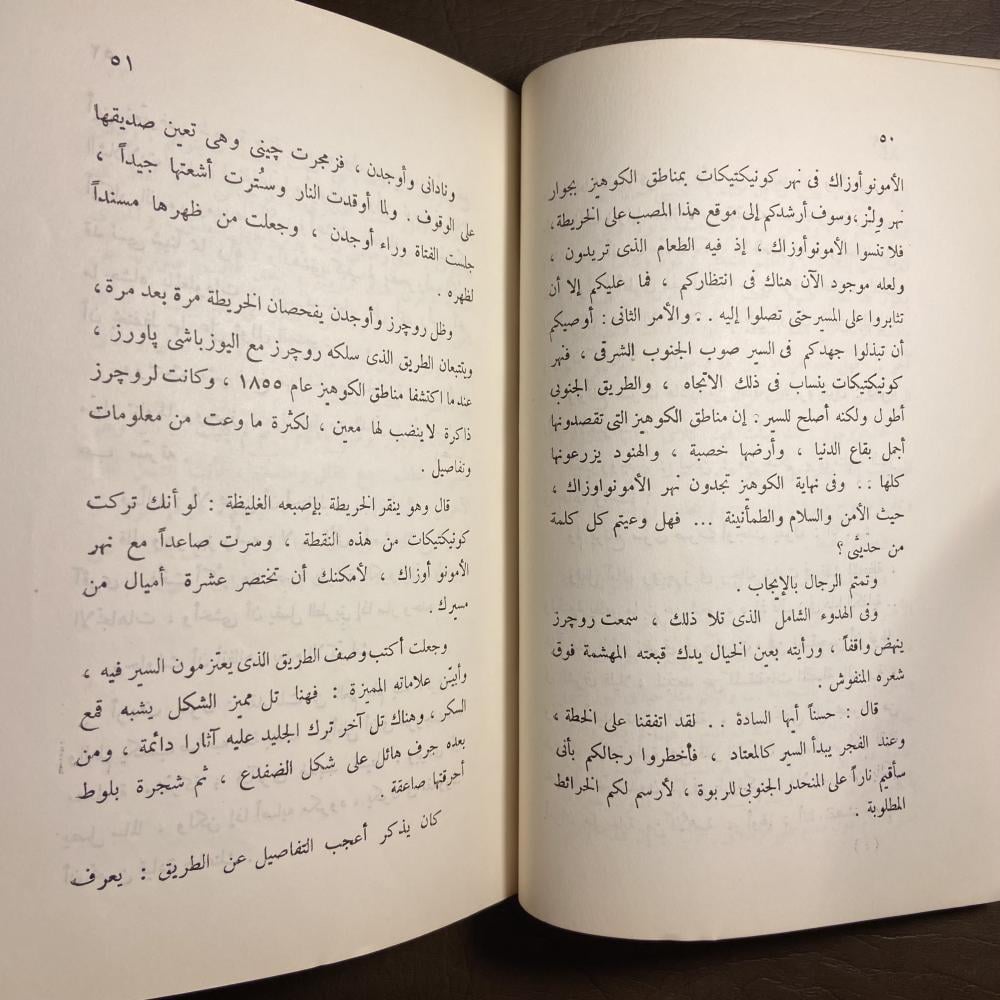 ٥٠
الأمونو أوزاك فى نهر كونيكتيكات بمناطق الكوهيز بجوار
نهر ولنز، وسوف أرشدكم إلى موقع هذا المصب على الخريطة،
فلا تنسوا الأمونوأوزاك ، إذ فيه الطعام الذى تريدون ،
ولعله موجود الآن هناك فى انتظاركم ، فما عليكم إلا أن
تثابروا على المسير حتى تصلوا إليه .. والأمر الثانى : أوصيكم
أن تبذلوا جهدكم فى السير صوب الجنوب الشرقى ، فنهر
كونيكتيكات ينساب فى ذلك الاتجاه ، والطريق الجنوبى
أطول ولكنه أصلح للسير . إن مناطق الكوهيز التى تقصدونها
أجمل بقاع الدنيا ، وأرضها خصبة ، والهنود يزرعونها
كلها .. وفى نهاية الكوهيز تجدون نهر الأمونواوزاك ،
حيث الأمن والسلام والطمأنينة ... فهل وعيتم كل كلمة
من حديثى ؟
وتمتم الرجال بالإيجاب .
وفى الهدوء الشامل الذى تلا ذلك ، سمعت روچرز
ينهض واقفاً ، ورأيته بعين الخيال يدك قبعته المهشمة فوق
شعره المنفوش .
قال : حسناً أيها السادة .. لقد اتفقنا على الخطة ،
وعند الفجر يبدأ السير كالمعتاد ، فأخطروا رجالكم بأنى
سأقيم ناراً على المنحدر الجنوبى للربوة ، لأرسم لكم الخرائط
المطلوبة .
(٤)
٥١
ونادانى وأوجدن ، فزمجرت چينى وهى تعين صديقها
على الوقوف . ولما أوقدت النار وسُترت أشعتها جيداً ،
جلست الفتاة وراء أوجدن ، وجعلت من ظهرها مسنداً
لظهره .
وظل روچرز وأوجدن يفحصان الخريطة مرة بعد مرة ،
ويتتبعان الطريق الذى سلكه روچرز مع اليوزباشى پاورز ،
عندما اكتشفا مناطق الكوهيز عام ١٨٥٥ ، وكانت لروچرز
ذاكرة لا ينضب لها معين ، لكثرة ما وعت من معلومات
وتفاصيل .
قال وهو ينقر الخريطة بإصبعه الغليظة : لو أنك تركت
كونيكتيكات من هذه النقطة ، وسرت صاعداً مع نهر
الأمونو أوزاك ، لأمكنك أن تختصر عشرة أميال من
مسيرك .
وجعلت أكتب وصف الطريق الذى يعتزمون السير فيه ،
وأبيّن علاماته المميزة : فهنا تل مميز الشكل يشبه قمع
السكر ، وهناك تل آخر ترك الجليد عليه آثارا دائمة ، ومن
بعده جرف هائل على شكل الضفدع ، ثم شجرة بلوط
أحرقتها صاعقة .
كان يذكر أعجب التفاصيل عن الطريق : يعرف